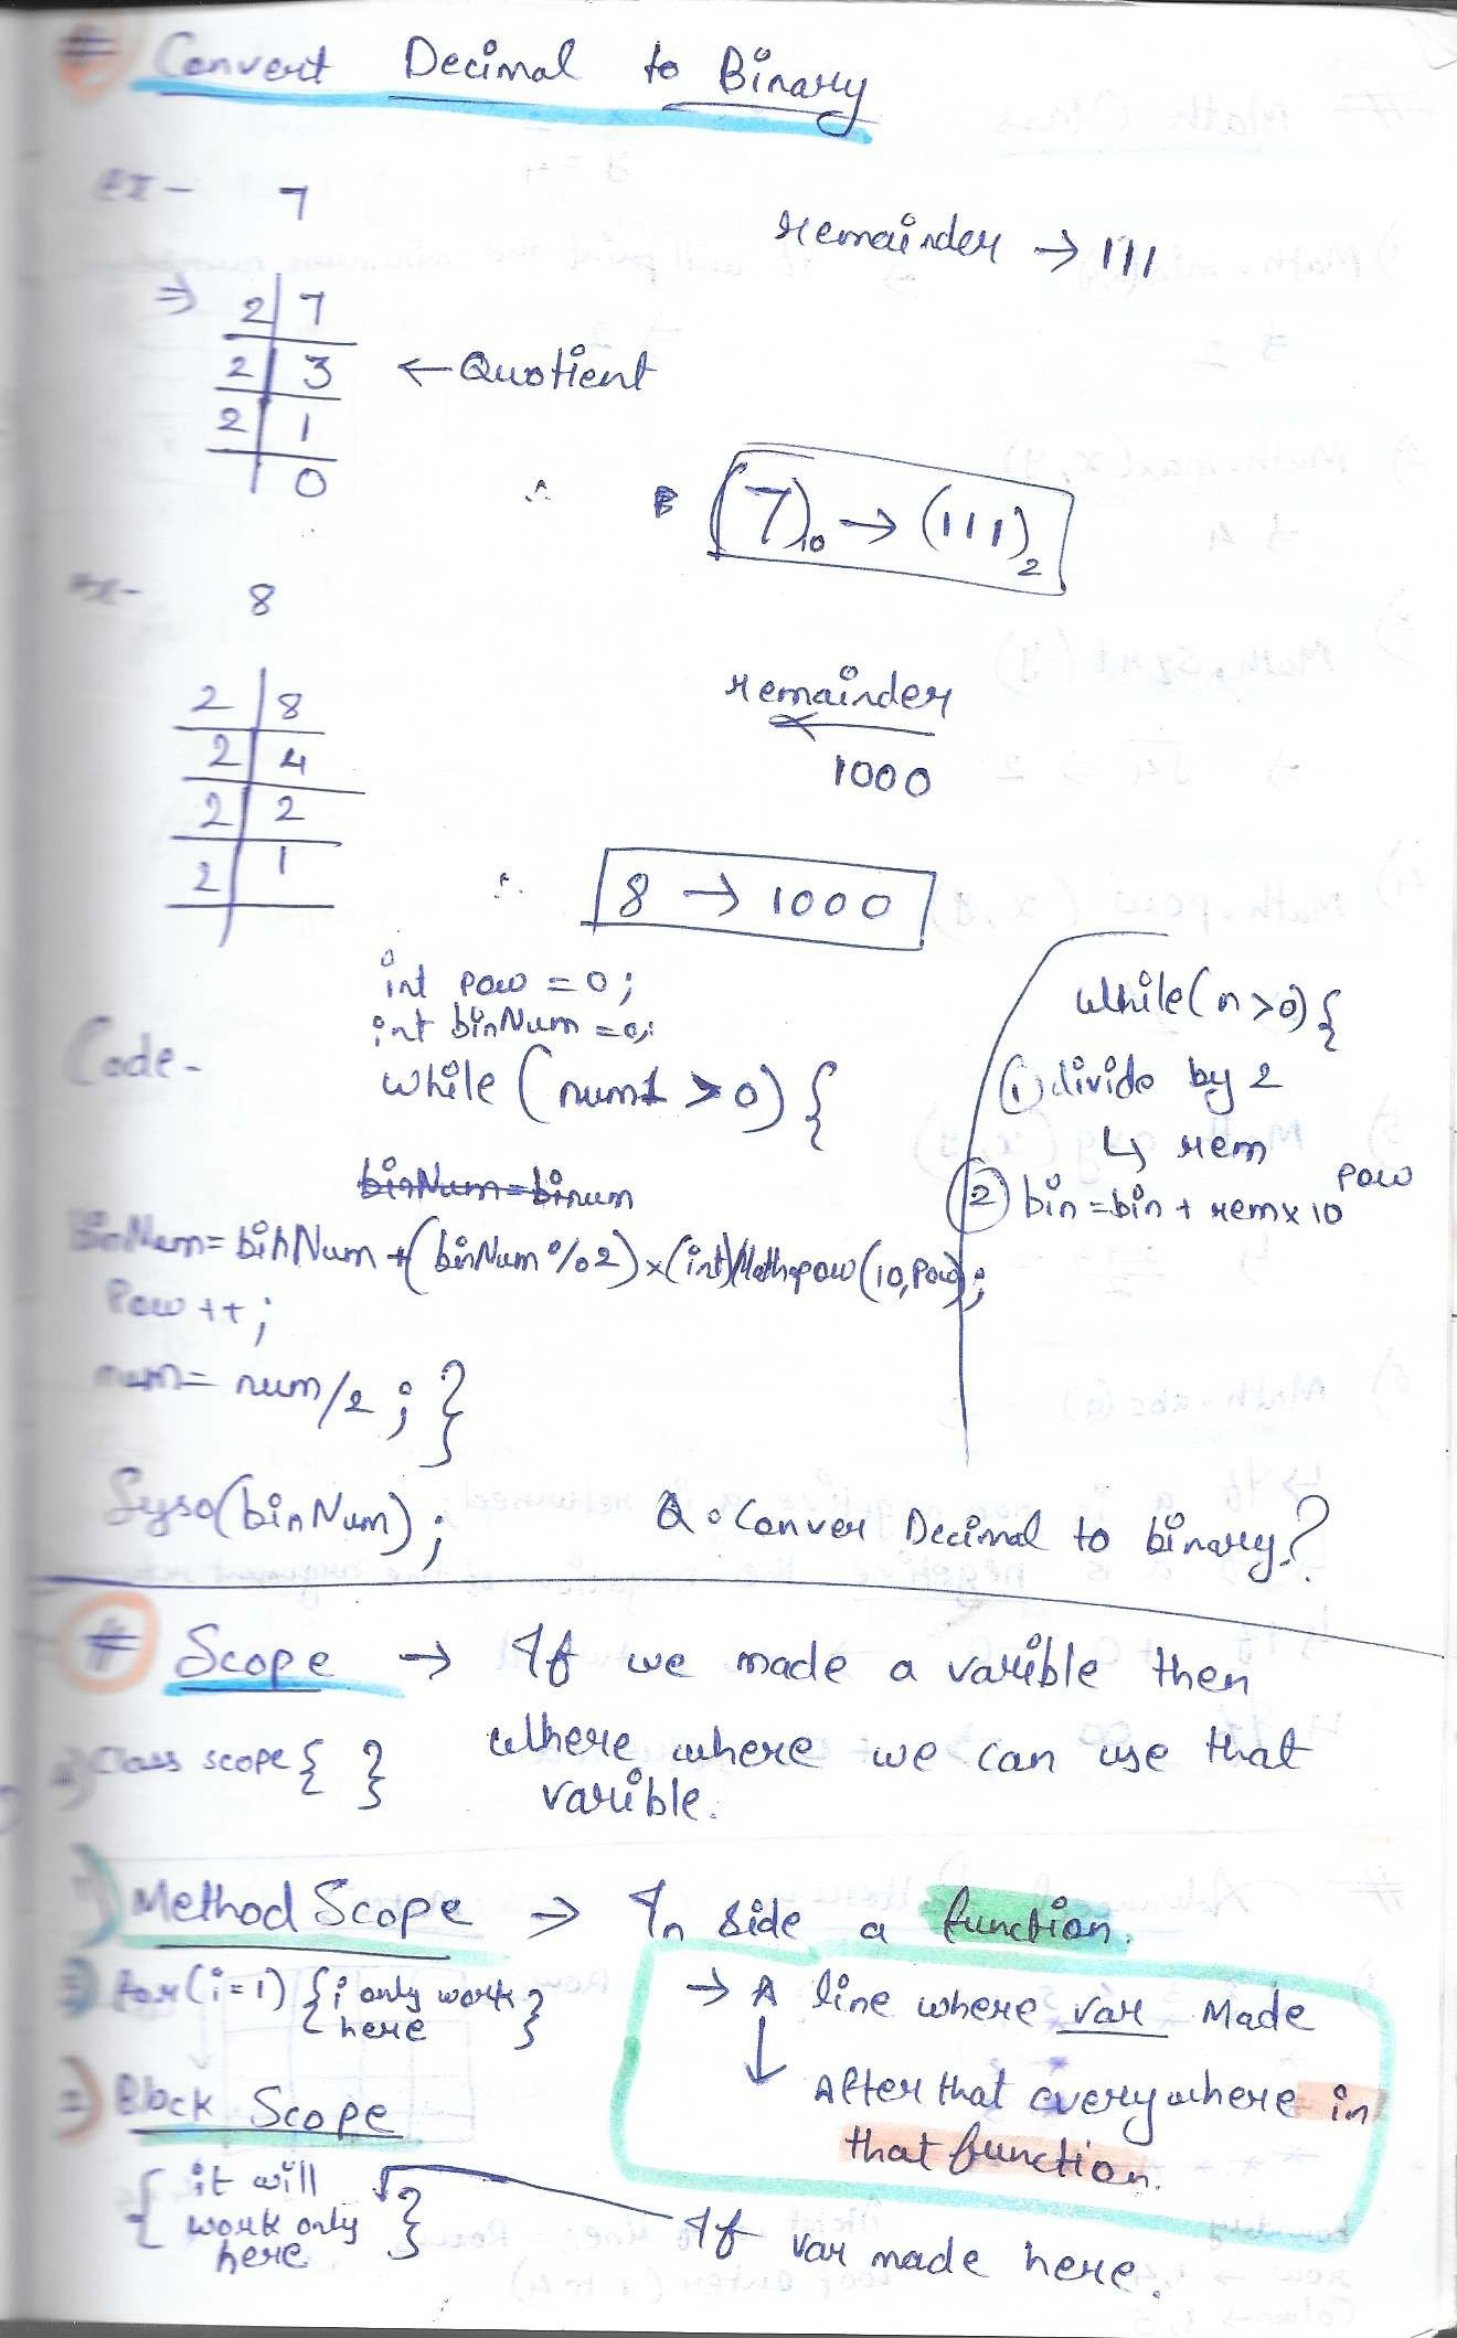 # Convert Decimal to Binary
ex- 7
remainder → 111
⇒ 2 | 7
2 | 3 ← Quotient
2 | 1
0
∴ (7)10 → (111)2
ex- 8
remainder
2 | 8
2 | 4
1000
2 | 2
2 | 1
∴ 8 → 1000
int pow = 0;
int binNum = 0;
Code-
while (num1 > 0) {
binNum = binum
binNum = binNum + (binNum % 2) × (int) Math.pow(10, Pow);
Pow ++;
num = num/2 ; }
Syso(binNum);
while(n>0) {
① divide by 2
↳ rem
② bin = bin + rem x 10 pow
Q. Conver Decimal to binary?
# Scope → If we made a varible then
where where we can use that
varible.
Class scope { }
Method Scope → In side a function.
→ A line where var Made
↓ After that everywhere in
that function.
for(i=1) { i only work
here }
⇒ Block Scope
{ it will
work only
here }
If var made here.